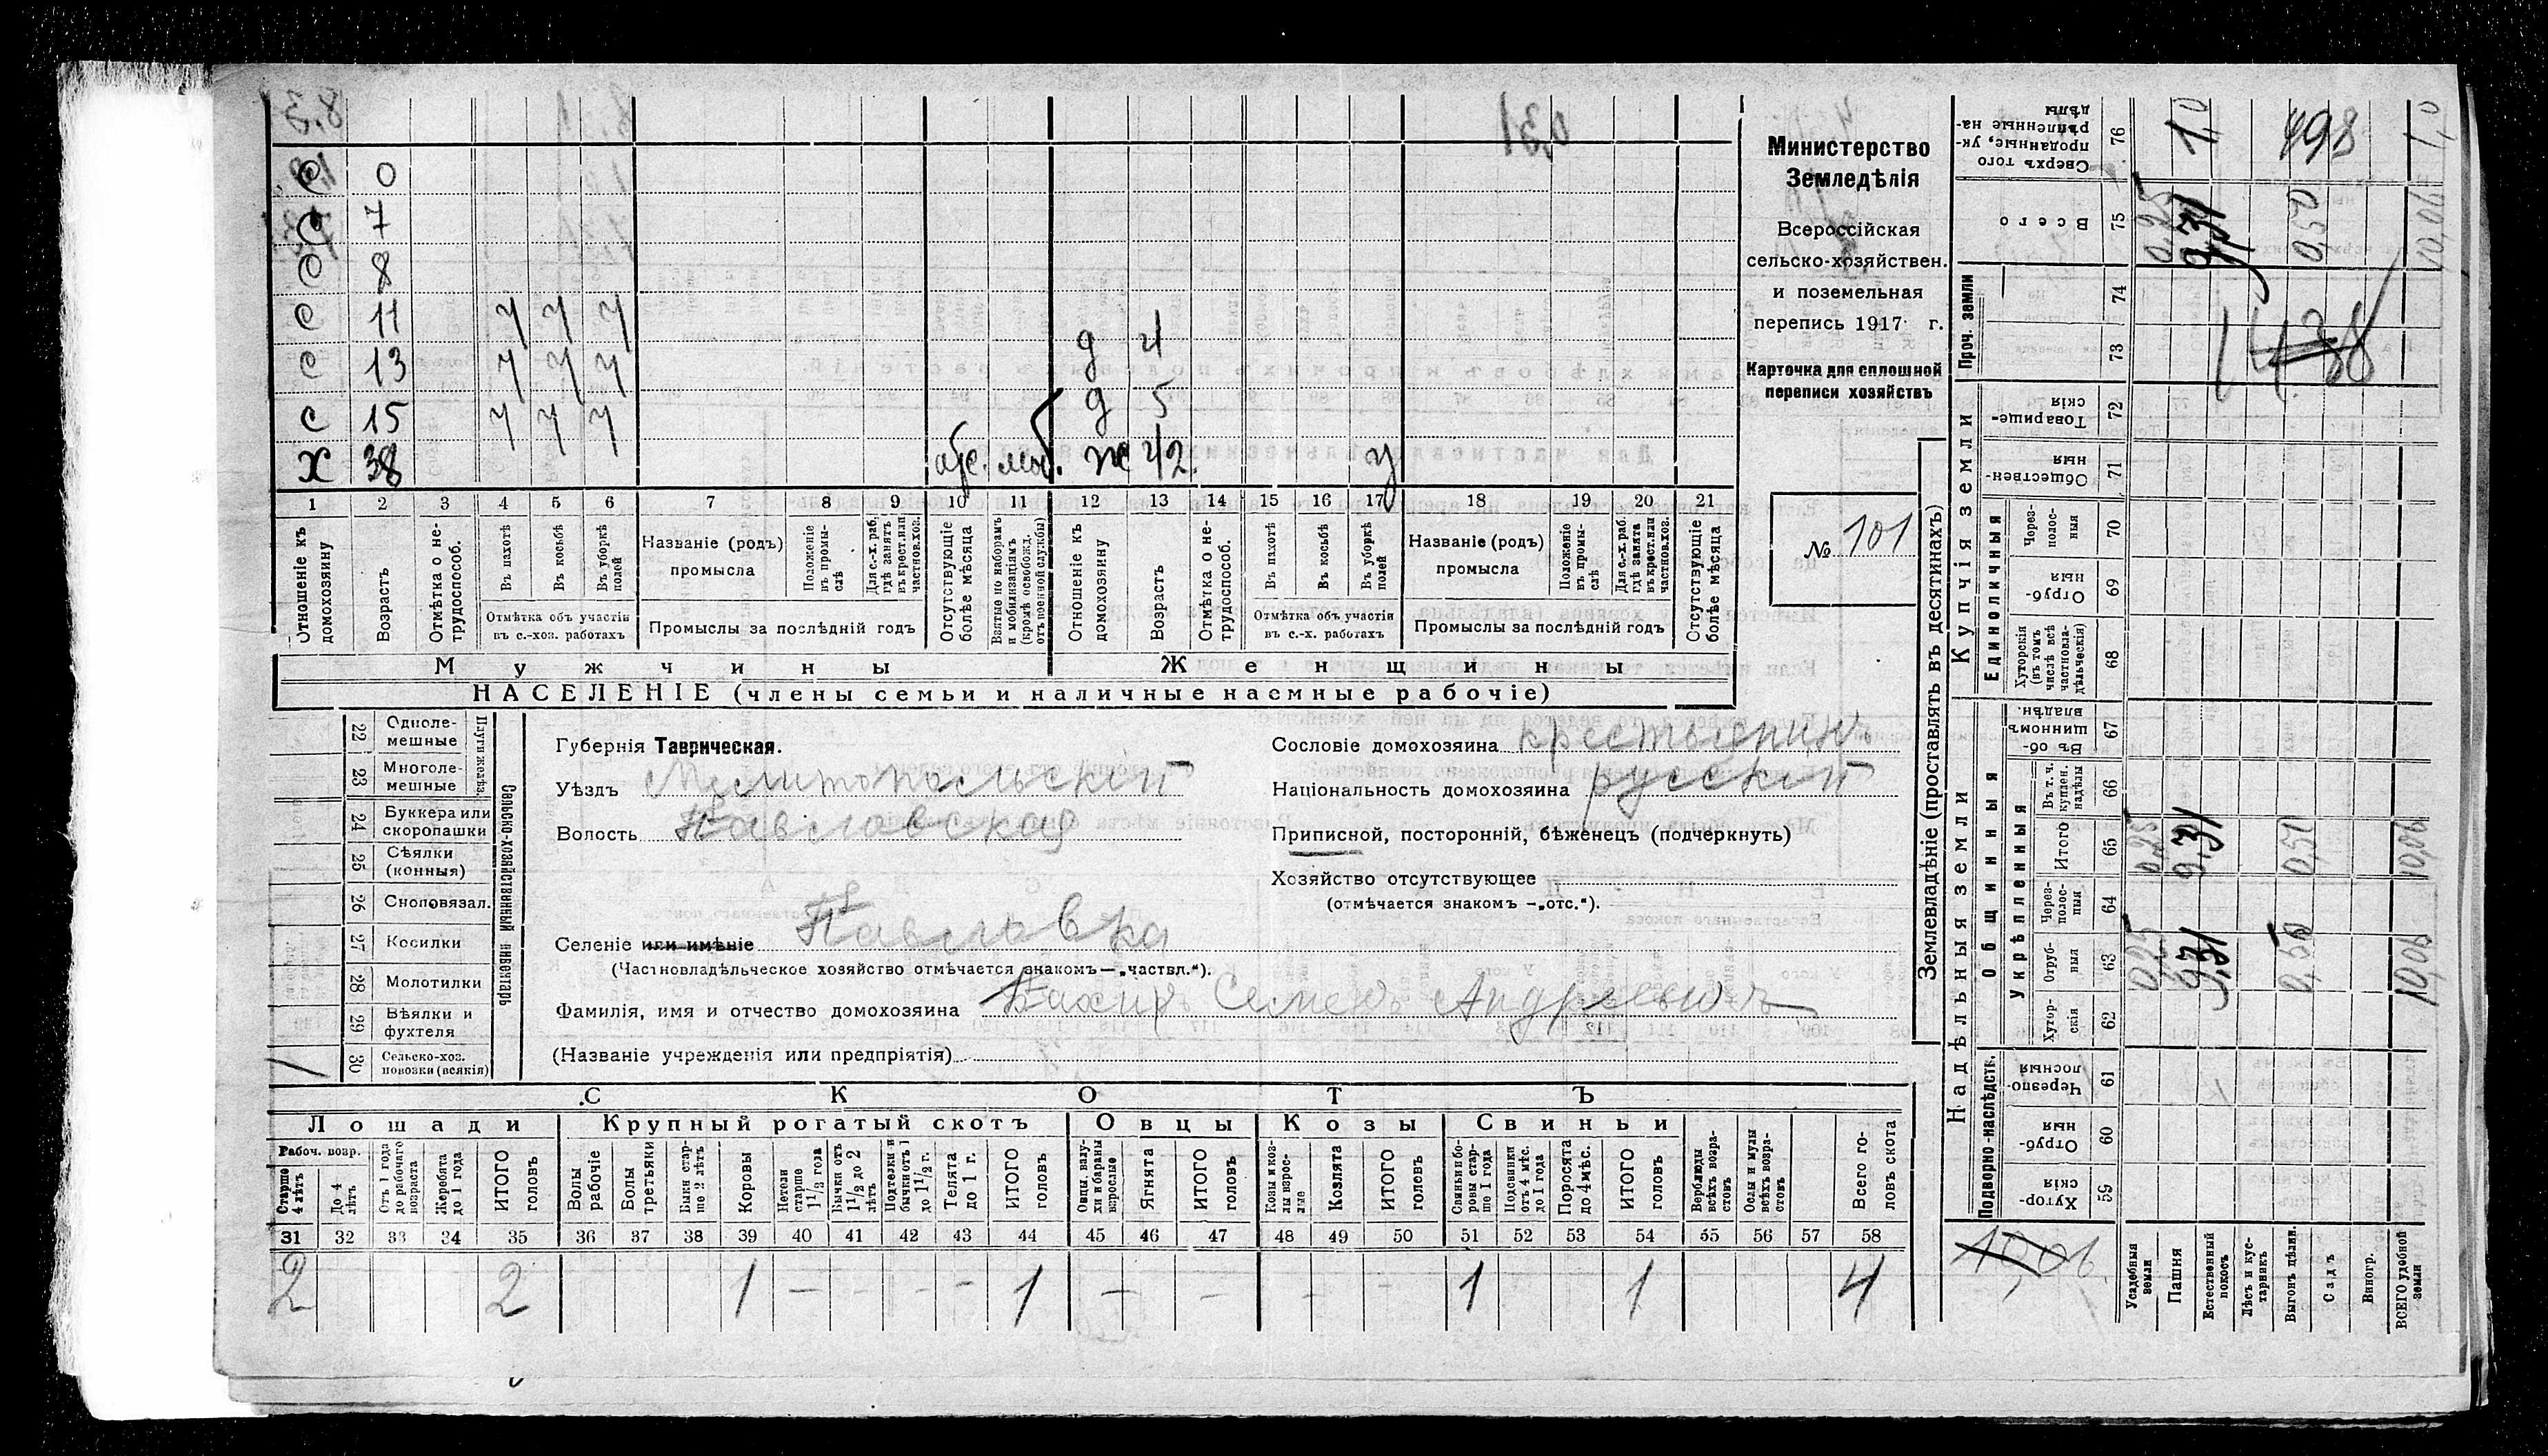 3,8
0,31
С 0
С 7
С 8
С 11 ч ч ч
С 13 ч ч ч д 4
С 15 ч ч ч д 5
Х 38 моб. ж 42 у
1 2 3 4 5 6 7 8 9 10 11 12 13 14 15 16 17 18 19 20 21
Отношеніе къ домохозяину
Возрастъ
Отмѣтка о нетрудоспособ.
Въ пахотѣ
Въ косьбѣ
Въ уборкѣ полей
Отмѣтка объ участіи въ с.-хоз. работахъ
Названіе (родъ) промысла
Положеніе въ промыслѣ
Для с.-х. раб. гдѣ занятъ въ крест. или частнов. хоз.
Промыслы за послѣдній годъ
Отсутствующіе болѣе мѣсяца
Взятые по наборамъ и мобилизаціямъ (кромѣ освобожд. отъ военной службы)
Отношеніе къ домохозяину
Возрастъ
Отмѣтка о нетрудоспособ.
Въ пахотѣ
Въ косьбѣ
Въ уборкѣ полей
Отмѣтка объ участіи въ с.-х. работахъ
Названіе (родъ) промысла
Положеніе въ промыслѣ
Для с.-х. раб. гдѣ занята въ крест. или частнов. хоз.
Промыслы за послѣдній годъ
Отсутствующіе болѣе мѣсяца
Мужчины Женщины
НАСЕЛЕНІЕ (члены семьи и наличные наемные рабочіе)
Министерство
Земледѣлія
Всероссійская
сельско-хозяйствен.
и поземельная
перепись 1917 г.
Карточка для сплошной
переписи хозяйствъ
№ 101
Сельско-хозяйственный инвентарь
Плуги желѣз.
22 Однолемешные
23 Многолемешные
24 Буккера или скоропашки
25 Сѣялки (конныя)
26 Сноповязал.
27 Косилки
28 Молотилки
29 Вѣялки и фухтеля
30 Сельско-хоз. повозки (всякія) 1
Губернія Таврическая.
Уѣздъ Мелитопольскій
Волость Павловская
Селеніе или имѣніе Павловка
(Частновладѣльческое хозяйство отмѣчается знакомъ — „частвл.“).
Фамилія, имя и отчество домохозяина Семенъ Андреевичъ
(Названіе учрежденія или предпріятія)
Сословіе домохозяина крестьянинъ
Національность домохозяина русскій
Приписной, посторонній, бѣженецъ (подчеркнуть)
Хозяйство отсутствующее
(отмѣчается знакомъ —„отс.“).
СКОТЪ
Лошади Крупный рогатый скотъ Овцы Козы Свиньи
Рабоч. возр.
Старше 4 лѣтъ
До 4 лѣтъ
Отъ 1 года до рабочаго возраста
Жеребята до 1 года
ИТОГО головъ
Волы рабочіе
Волы третьяки
Быки старше 2 лѣтъ
Коровы
Нетели старше 1 1/2 года
Бычки отъ 1 1/2 до 2 лѣтъ
Подтелки и бычки отъ 1 до 1 1/2 г.
Телята до 1 г.
ИТОГО головъ
Овцы, валухи и бараны взрослые
Ягнята
ИТОГО головъ
Козы и козлы взрослые
Козлята
ИТОГО головъ
Свиньи и боровы старше 1 года
Подсвинки отъ 4 мѣс. до 1 года
Поросята до 4 мѣс.
ИТОГО головъ
Верблюды всѣхъ возрастовъ
Ослы и мулы всѣхъ возрастовъ
Всего головъ скота
31 32 33 34 35 36 37 38 39 40 41 42 43 44 45 46 47 48 49 50 51 52 53 54 55 56 57 58
2 2 1 — — — — 1 — — — — 1 1 4
Землевладѣніе (проставлять въ десятинахъ)
Надѣльныя земли
Купчія земли
Проч. земли
Подворно-наслѣдств.
Общинныя
Укрѣпленныя
Единоличныя
76 Сверхъ того проданные, укрѣпленные надѣлы 1,0 498 1,0
75 Всего 0,25 9,31 0,50 10,06
74
73
72 Товарищескія
71 Общественныя
70 Черезполосныя
69 Отрубныя
68 Хуторскія (въ томъ числѣ всѣ частновладѣльческія)
67 Въ общинномъ владѣн.
66 Въ т. ч. куплен. надѣлы
65 Итого 0,25 9,31 0,51 10,06
64 Черезполосныя
63 Отрубныя 0,25 9,31 0,50 10,06
62 Хуторскія
61 Черезполосныя
60 Отрубныя
59 Хуторскія
10,06
Усадебныя земли
Пашня
Естественный покосъ
Лѣсъ и кустарникъ
Выгонъ цѣлин.
Садъ
Виногр.
ВСЕГО удобной земли